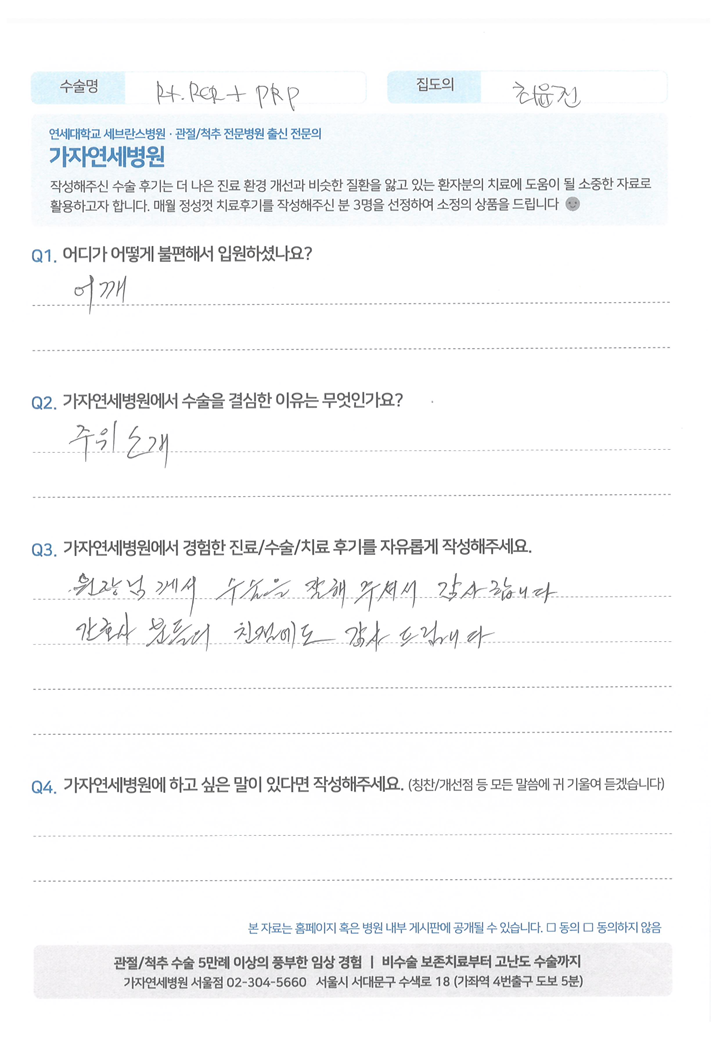 수술명 Rt. RCR + PRP 집도의 최윤진
연세대학교 세브란스병원 · 관절/척추 전문병원 출신 전문의
가자연세병원
작성해주신 수술 후기는 더 나은 진료 환경 개선과 비슷한 질환을 앓고 있는 환자분의 치료에 도움이 될 소중한 자료로
활용하고자 합니다. 매월 정성껏 치료후기를 작성해주신 분 3명을 선정하여 소정의 상품을 드립니다
Q1. 어디가 어떻게 불편해서 입원하셨나요?
어깨
Q2. 가자연세병원에서 수술을 결심한 이유는 무엇인가요?
주위 소개
Q3. 가자연세병원에서 경험한 진료/수술/치료 후기를 자유롭게 작성해주세요.
원장님께서 수술을 잘해 주셔서 감사합니다
간호사 분들의 친절에도 감사 드립니다
Q4. 가자연세병원에 하고 싶은 말이 있다면 작성해주세요. (칭찬/개선점 등 모든 말씀에 귀 기울여 듣겠습니다)
본 자료는 홈페이지 혹은 병원 내부 게시판에 공개될 수 있습니다. □ 동의 □ 동의하지 않음
관절/척추 수술 5만례 이상의 풍부한 임상 경험 | 비수술 보존치료부터 고난도 수술까지
가자연세병원 서울점 02-304-5660 서울시 서대문구 수색로 18 (가좌역 4번출구 도보 5분)